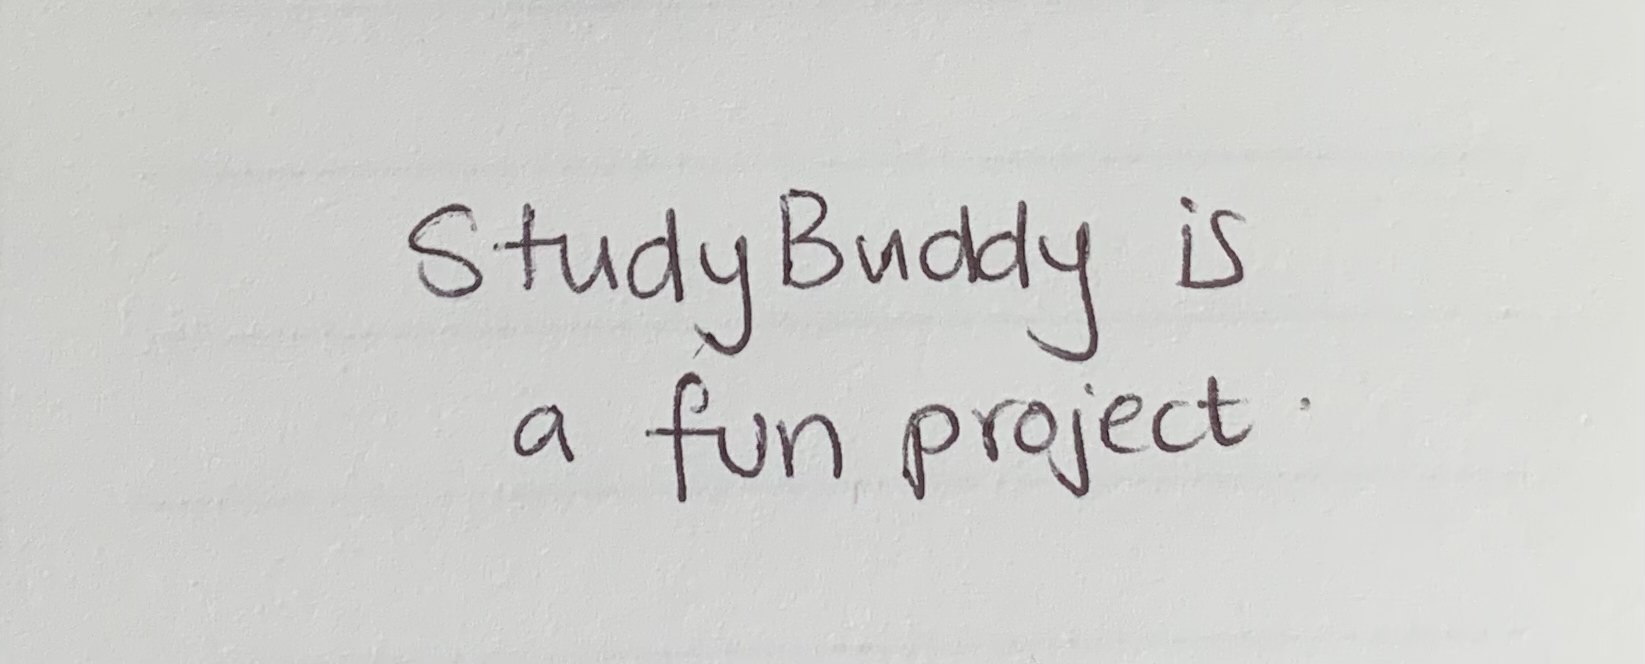 StudyBuddy is
a fun project.